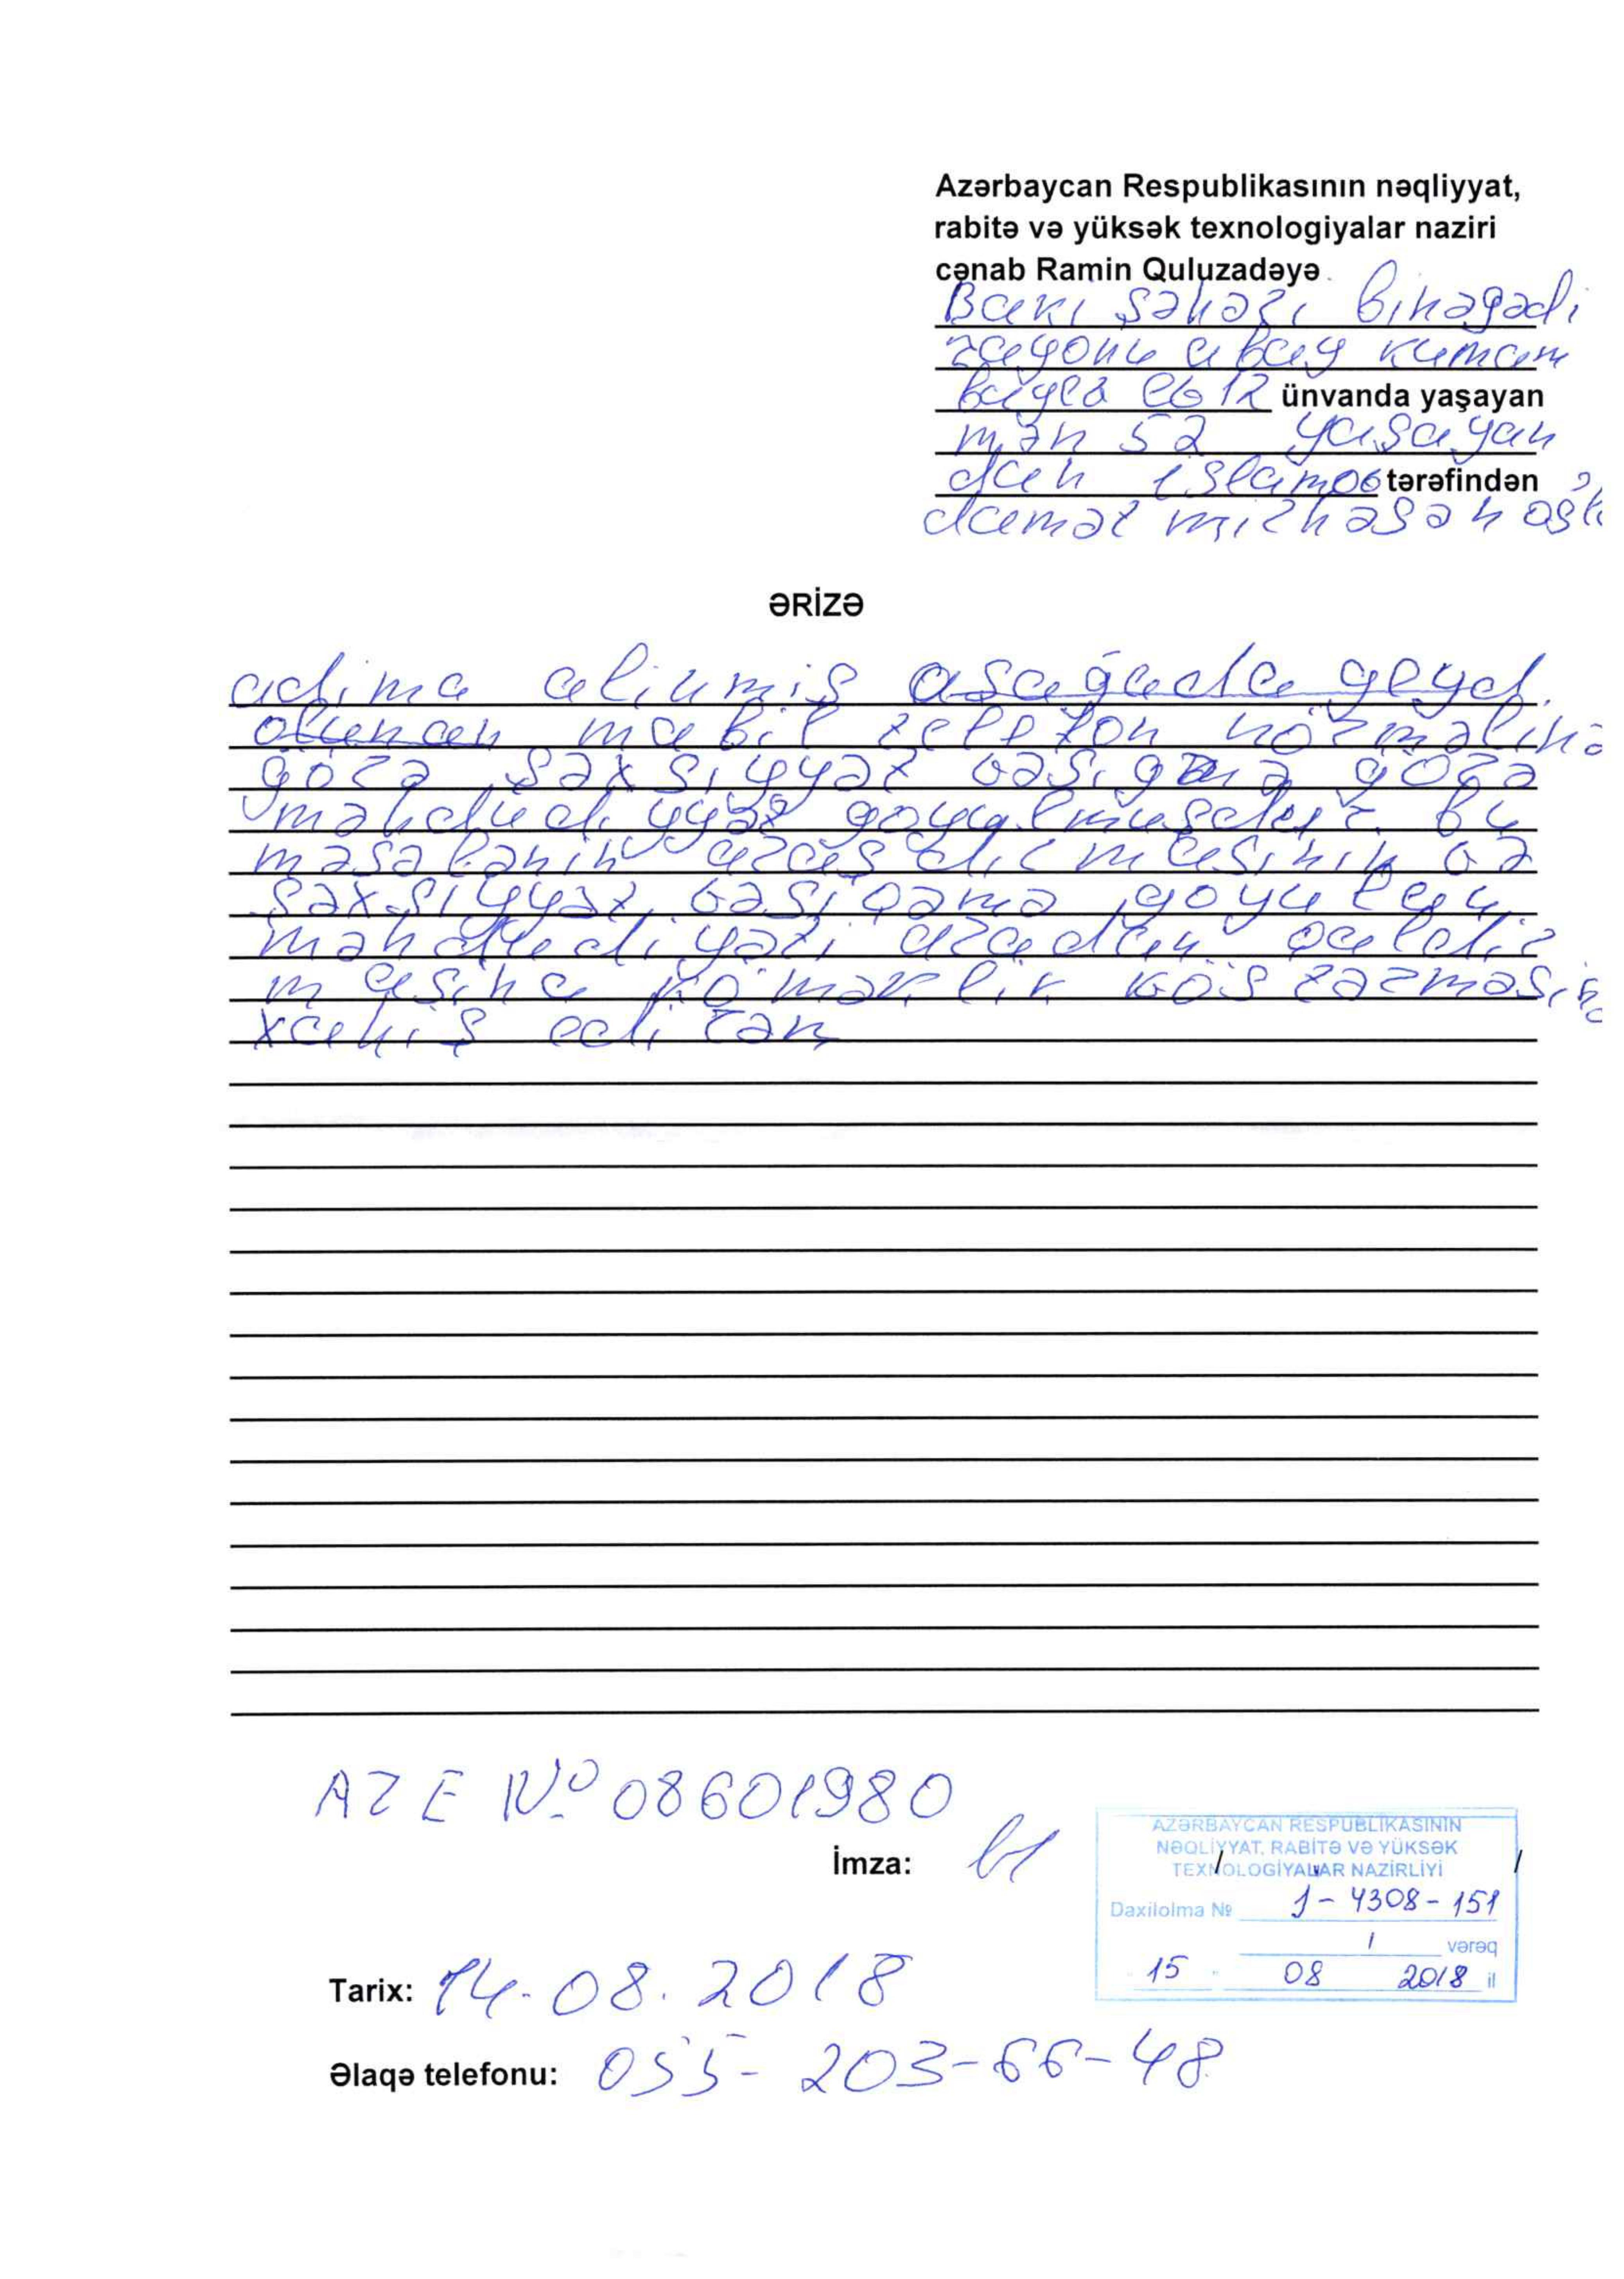 Azərbaycan Respublikasının nəqliyyat,
rabitə və yüksək texnologiyalar naziri
cənab Ramin Quluzadəyə
Bakı şəhəri binəgədi
rayonu abay kunan
bayev ev 12 ünvanda yaşayan
mən 52 yaşayan
dan islamov tərəfindən
damət mirhəsən oğl
ƏRİZƏ
adıma alınmış aşağada qeyd
olunan mabil telefon nörməlinə
görə şəxsiyyət vəsiqəmə görə
məhdudiyyət qoyulmuşdur. bu
məsələnin araşdırmasının və
şəxsiyyət vəsiqəmə qoyulan
məhdudiyəti azadan
masına köməklik köstərməsinə
xahiş edirəm
AZE № 08601980
İmza:
AZƏRBAYCAN RESPUBLİKASININ
NƏQLİYYAT, RABİTƏ VƏ YÜKSƏK
TEXNOLOGİYALAR NAZİRLİYİ
Daxilolma № J-4308-151
1 vərəq
15 08 2018 il
Tarix: 14.08.2018
Əlaqə telefonu: 055-203-66-48